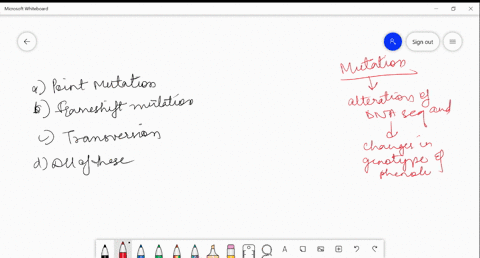 Microsoft Whiteboard
Sign out
a) Point Mutation
b) Frameshift mutation
c) Transversion
d) All of these
Mutation
alterations of
DNA seq and
changes in
genotype &
A